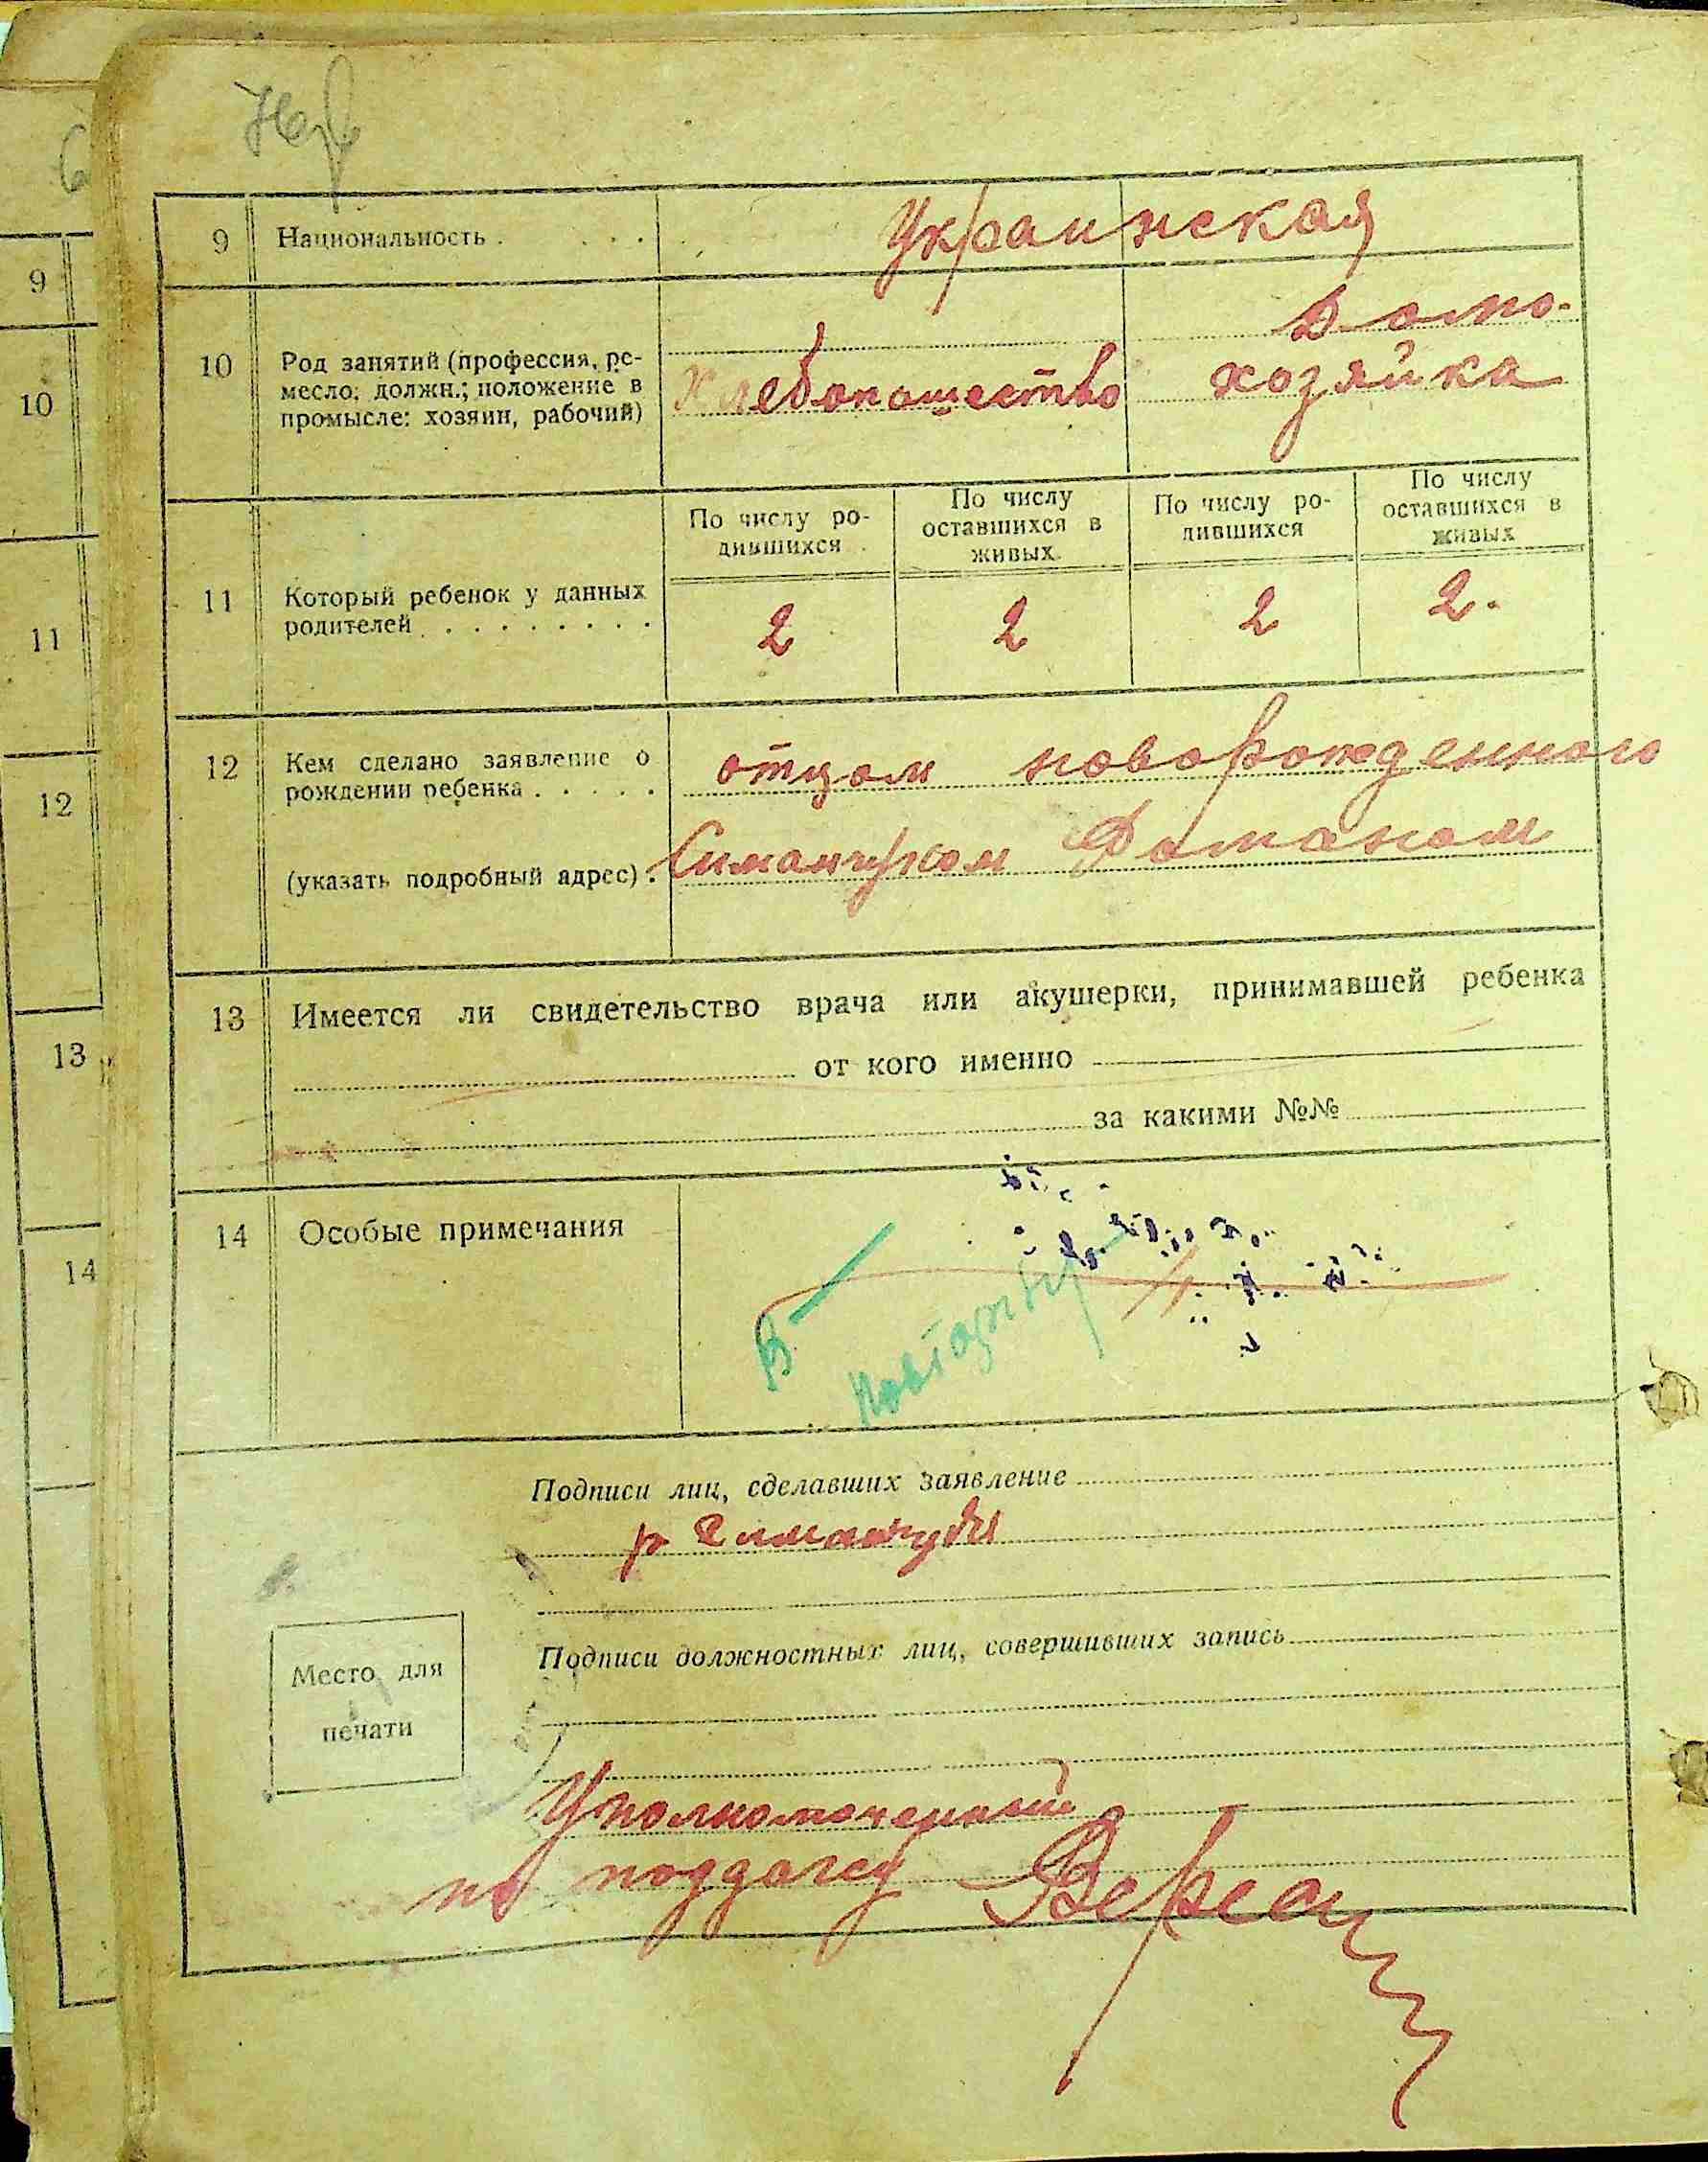 9 Национальность . . . . Украинская
10 Род занятий (профессия, ре-
месло; должн.; положение в
промысле: хозяин, рабочий)
Хлебопашество
Домо-
хозяйка
По числу ро-
дившихся
По числу
оставшихся в
живых
По числу ро-
дившихся
По числу
оставшихся в
живых
11 Который ребенок у данных
родителей . . . . . . . . .
2 2 2 2.
12 Кем сделано заявление о
рождении ребенка . . . . .
отцом новорожденного
(указать подробный адрес) .
13 Имеется ли свидетельство врача или акушерки, принимавшей ребенка
от кого именно
за какими №№
14 Особые примечания
Подписи лиц, сделавших заявление
Подписи должностных лиц, совершивших запись
Место для
печати
Уполномоченный
по
9
10
11
12
13
14